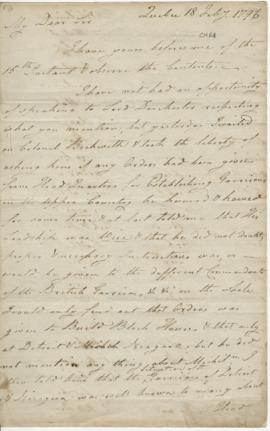 Quebec 18 Feby 1796
My Dear Sir
I have yours before me of the
15th Instant & observe the Contents
I have not had an opportunity
of speaking to Lord Dorchester respecting
what you mention, but yesterday I waited
on Colonel Beckwith & took the liberty of
asking him if any Orders had been given
from Head Quarters for Establishing Garrisons
in the upper Country, he hemmed & hawed
for some time & at last told me that His
Lordship was & that he did not doubt
proper & necessary Instructions was, or
would be given to the different Commandants
of the British Garrisons, &c in the whole
I could only find out that Orders was
given to Build Block Houses & that only
at Detroit & Niagara, but he did
not mention any thing about Mackina I
then told him that the Situation of the Garrisons of Detroit
& Niagara was well known to many &